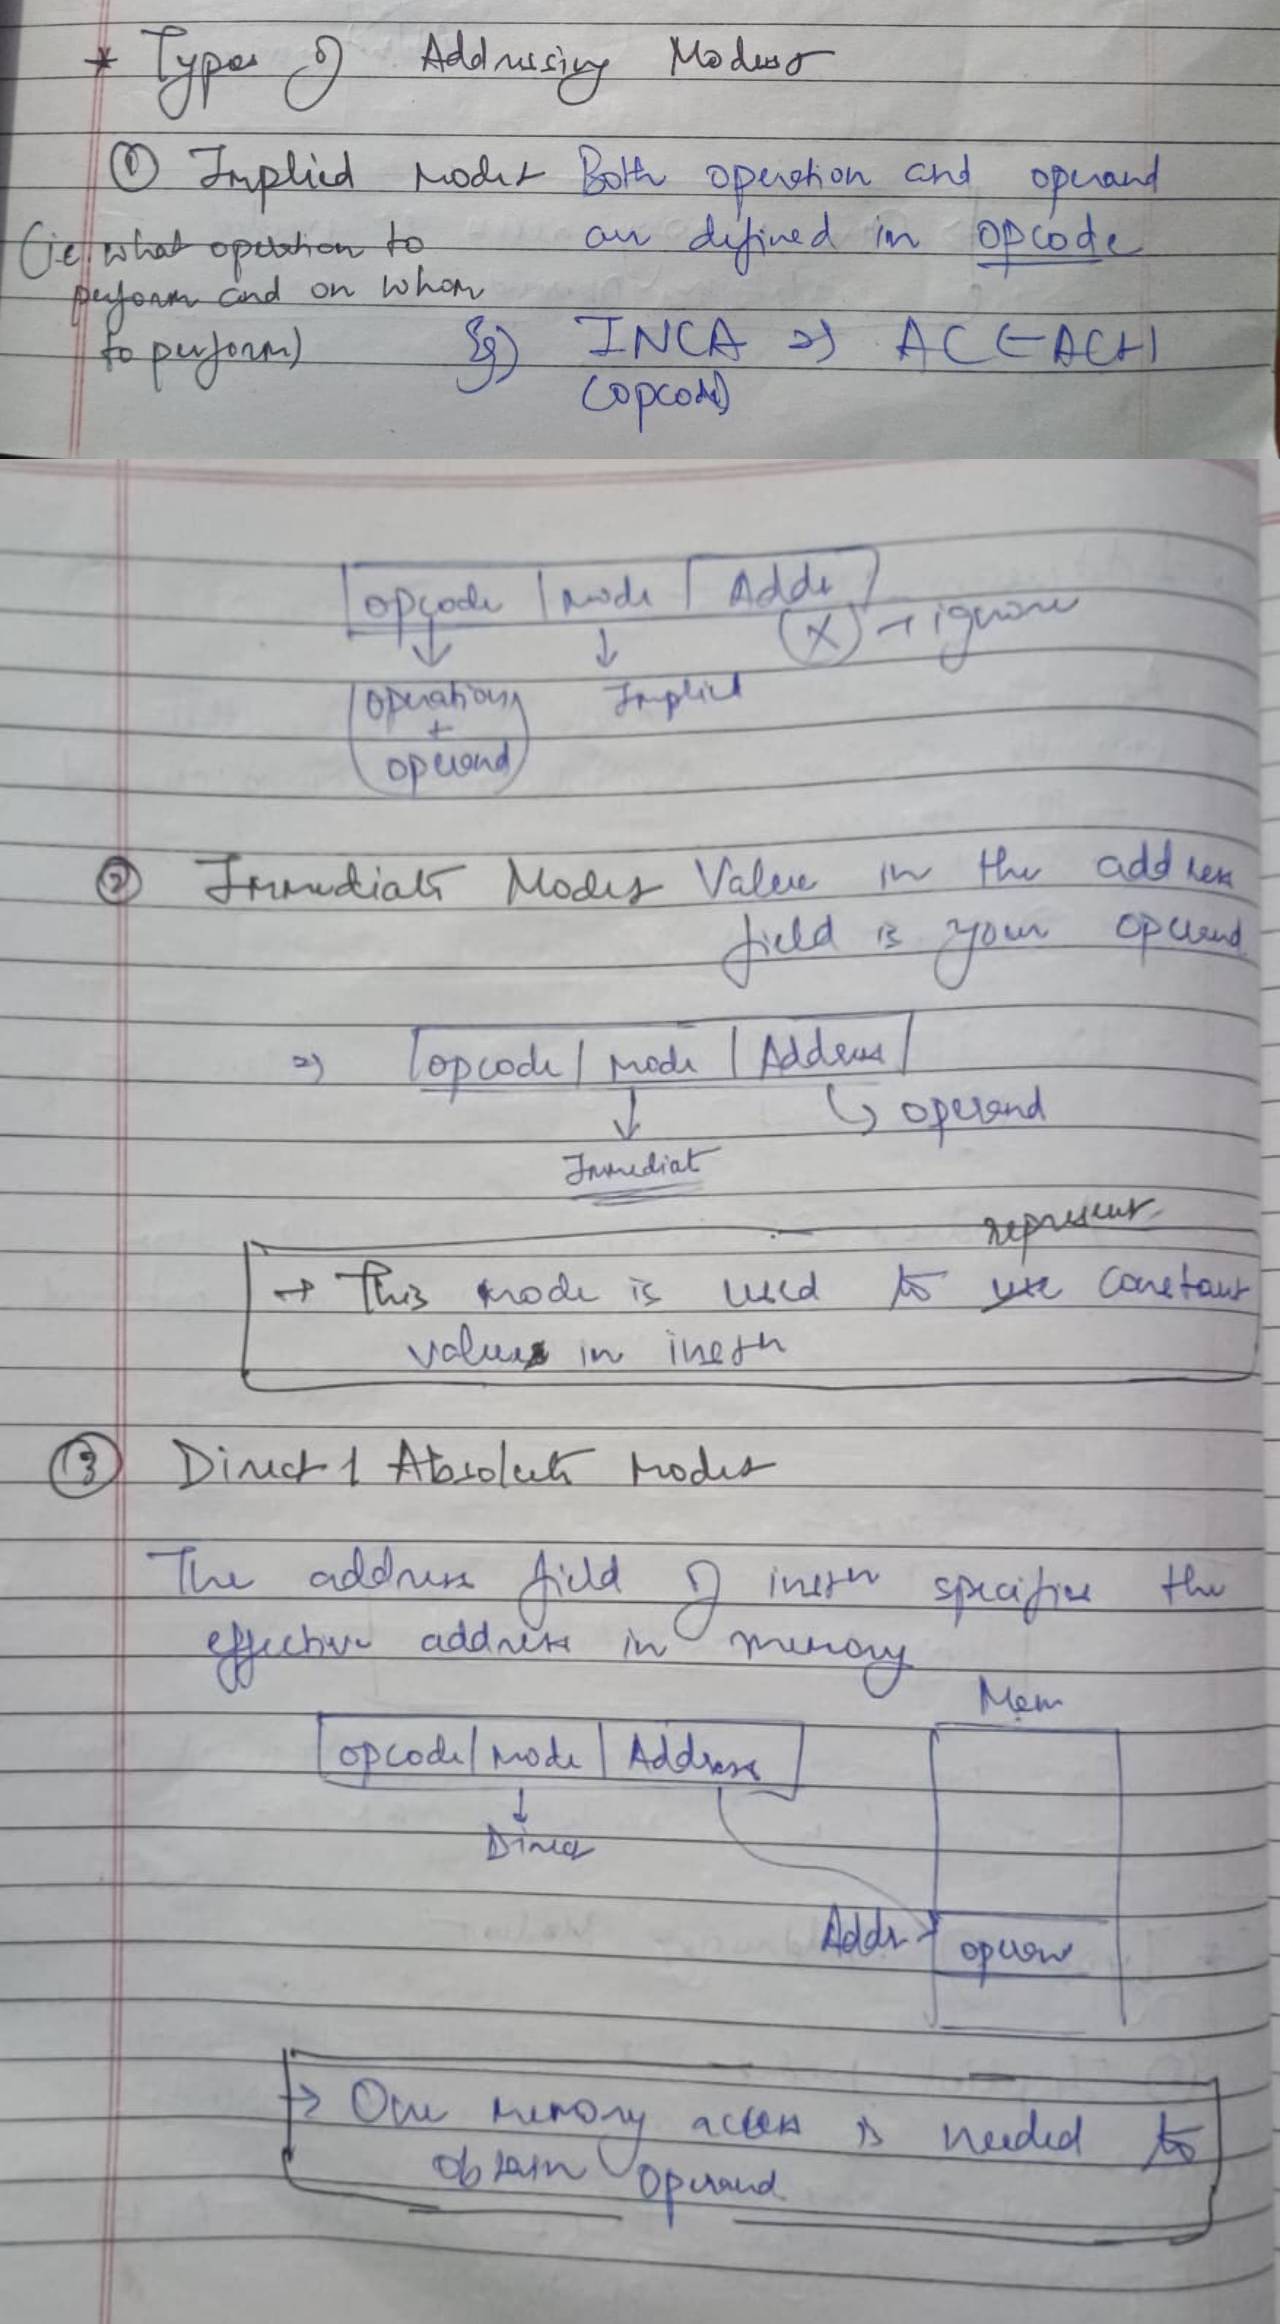 * Types of Addressing Modes
① Implied Mode: Both operation and operand
(i.e. what operation to are defined in opcode
perform and on whom
to perform) Eg) INCA => AC ← AC+1
(opcode)
opcode | Mode | Addr
(X) → ignore
operation Implied
+
operand
② Immediate Mode: Value in the address
field is your operand
=> opcode | Mode | Address
↳ operand
Immediat
represent
→ This mode is used to use constant
values in instn
③ Direct / Absolute Mode:
The address field of instn specifies the
effective address in memory
Mem
opcode | Mode | Address
Direct
Addr →
→ One memory access is needed to
obtain operand